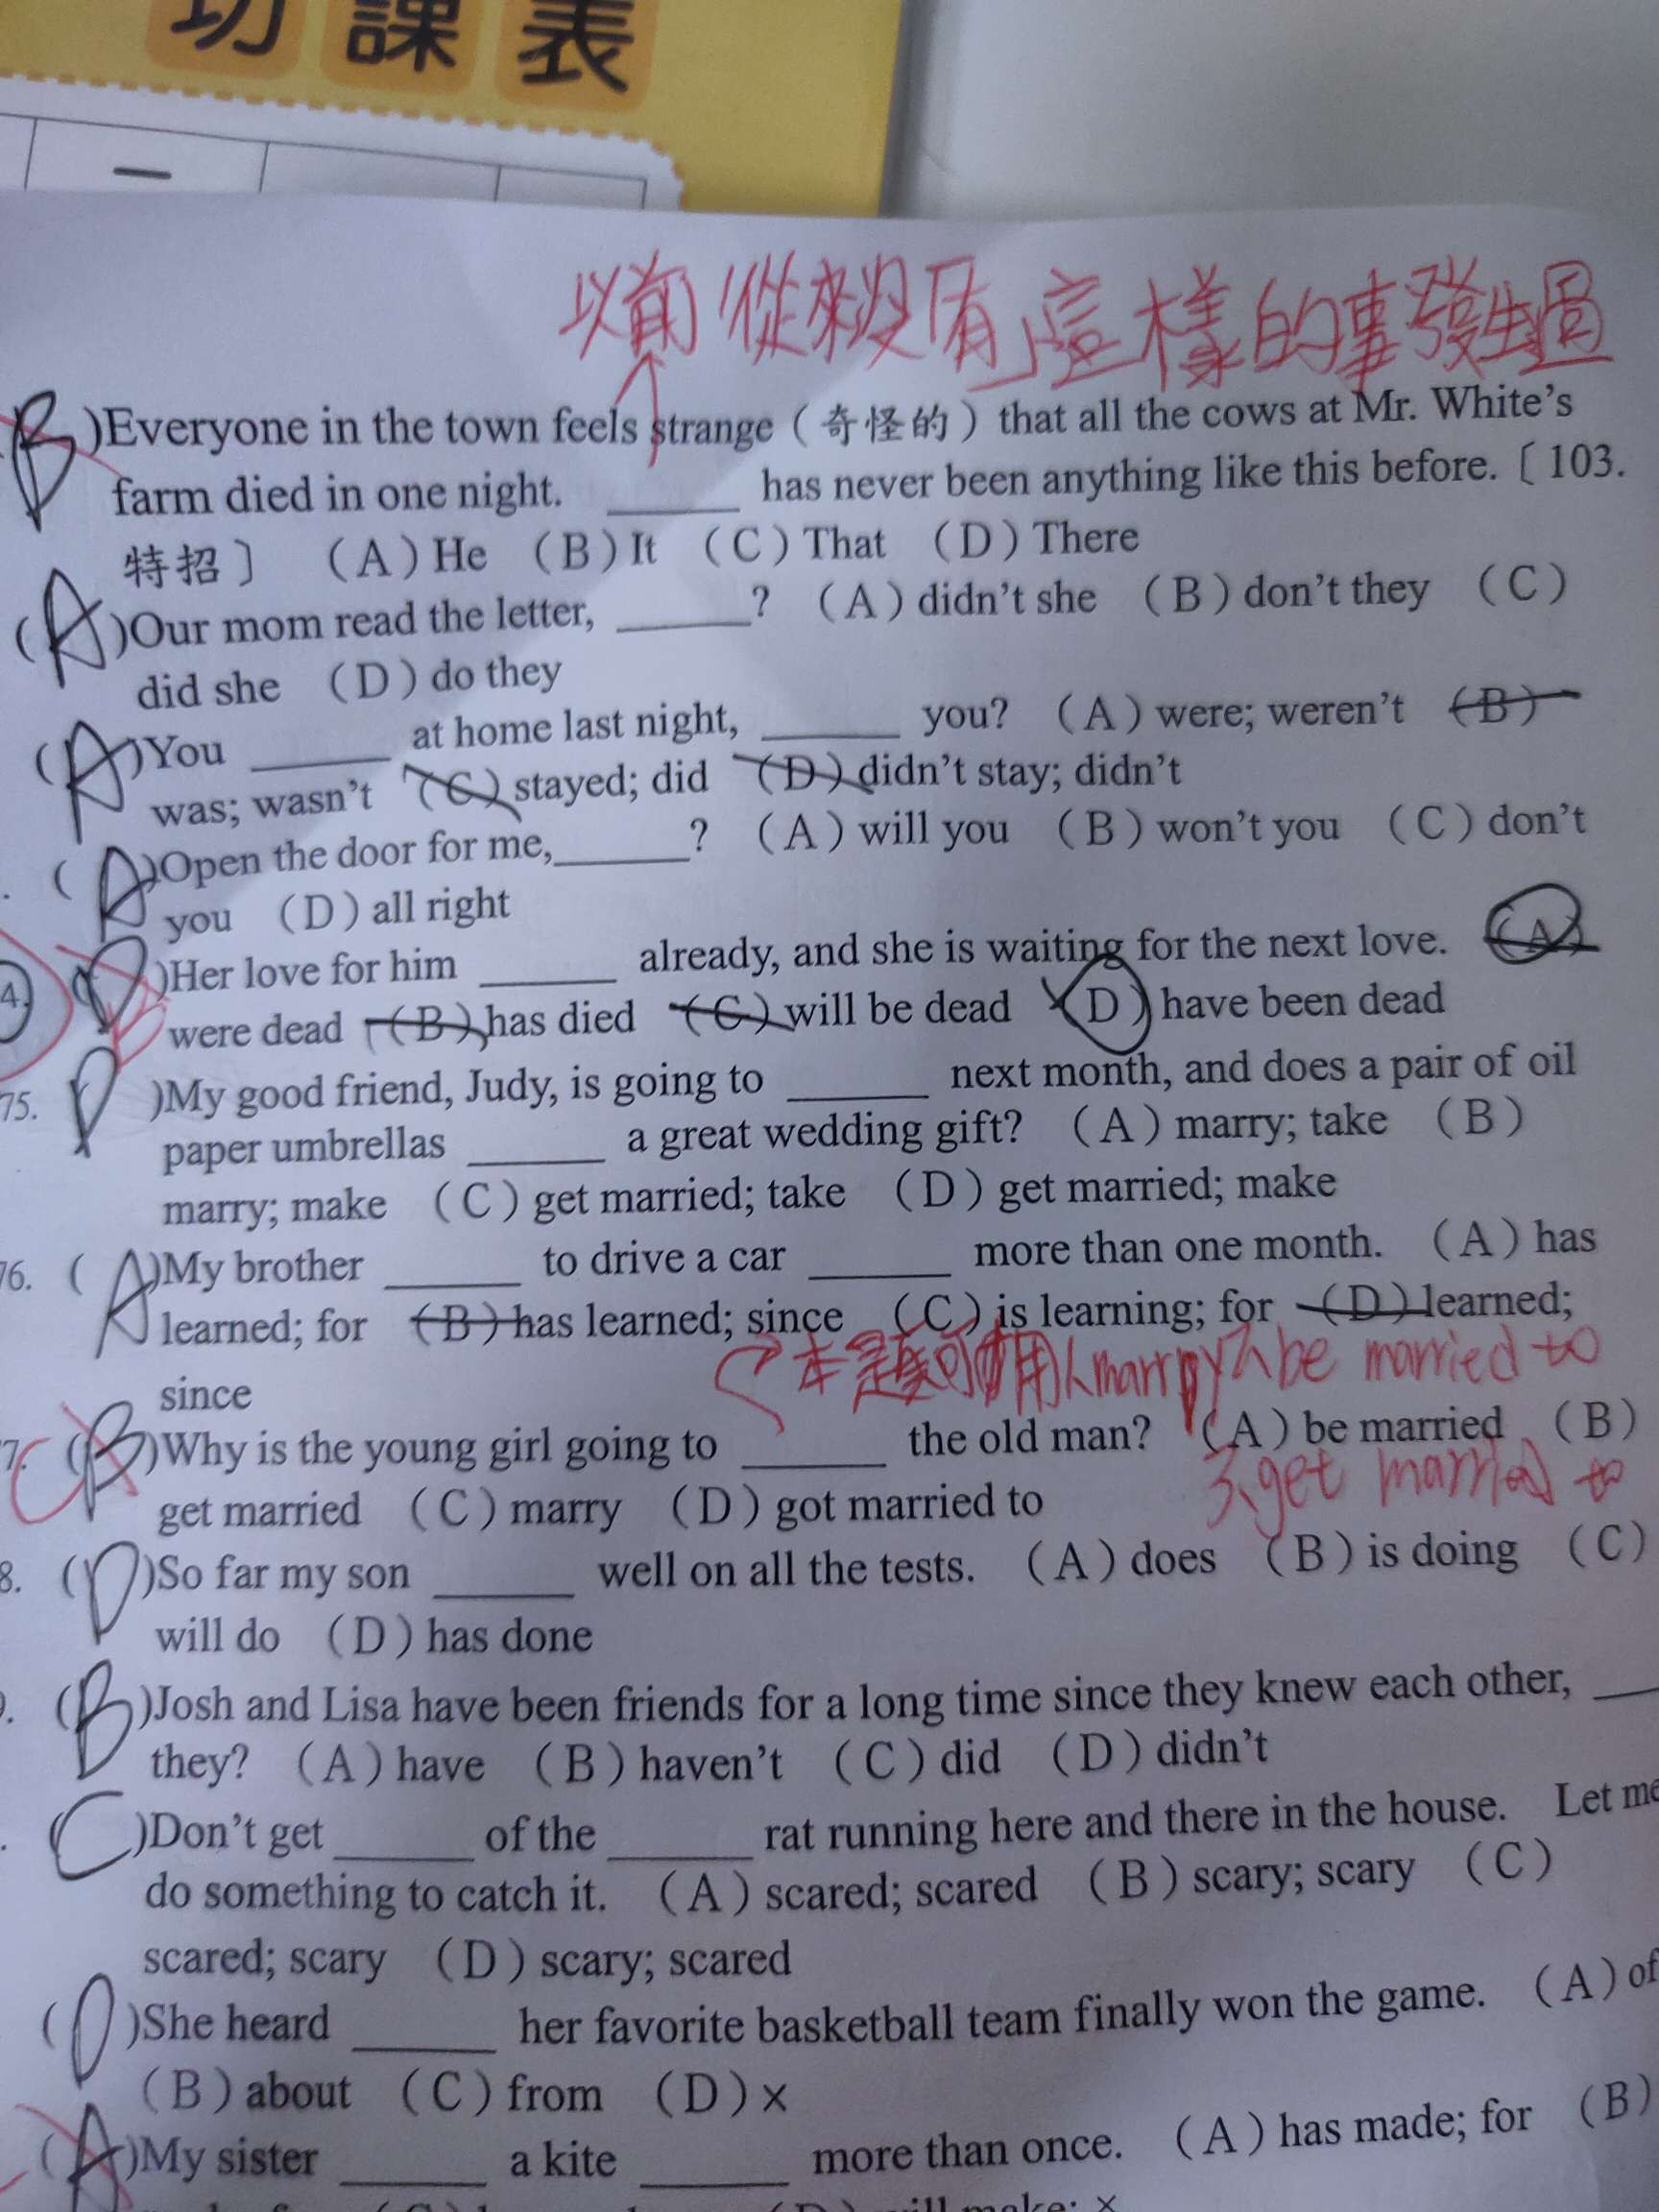 功課表
一
以前「從來沒有」這樣的事發生過
B )Everyone in the town feels strange（奇怪的）that all the cows at Mr. White's
farm died in one night. ______ has never been anything like this before.〔103.
特招〕 （A）He （B）It （C）That （D）There
( A )Our mom read the letter, ______? （A）didn't she （B）don't they （C）
did she （D）do they
( A )You ______ at home last night, ______ you? （A）were; weren't （B）
was; wasn't （C）stayed; did （D）didn't stay; didn't
. ( A )Open the door for me,______? （A）will you （B）won't you （C）don't
you （D）all right
4. ( )Her love for him ______ already, and she is waiting for the next love. （A）
were dead （B）has died （C）will be dead （D）have been dead
75. D )My good friend, Judy, is going to ______ next month, and does a pair of oil
paper umbrellas ______ a great wedding gift? （A）marry; take （B）
marry; make （C）get married; take （D）get married; make
76. ( A )My brother ______ to drive a car ______ more than one month. （A）has
learned; for （B）has learned; since （C）is learning; for （D）learned;
本題可用1.marry 2.be married to
since
7. ( B )Why is the young girl going to ______ the old man? （A）be married （B）
3.get married to
get married （C）marry （D）got married to
8. ( D )So far my son ______ well on all the tests. （A）does （B）is doing （C）
will do （D）has done
. ( B )Josh and Lisa have been friends for a long time since they knew each other, __
they? （A）have （B）haven't （C）did （D）didn't
. C )Don't get ______ of the ______ rat running here and there in the house. Let me
do something to catch it. （A）scared; scared （B）scary; scary （C）
scared; scary （D）scary; scared
( D )She heard ______ her favorite basketball team finally won the game. （A）of
（B）about （C）from （D）×
( A )My sister ______ a kite ______ more than once. （A）has made; for （B）
make; ×